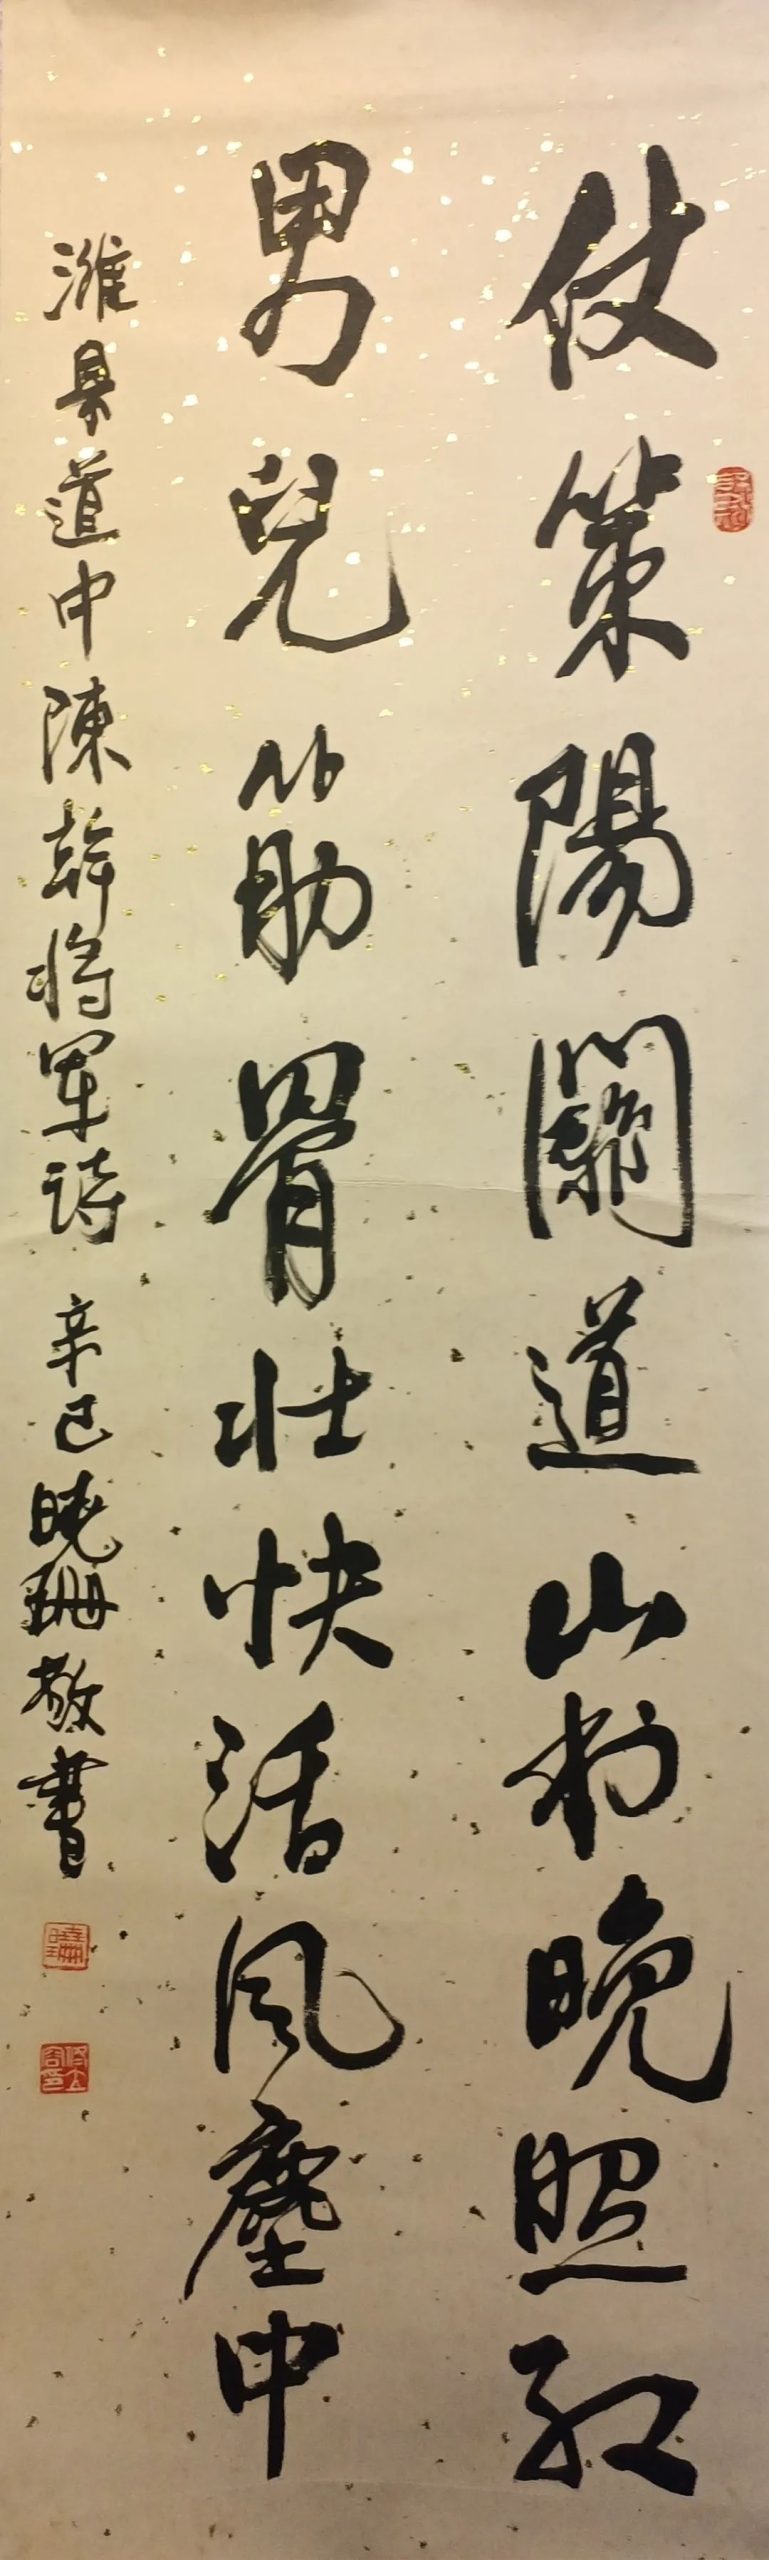 仗策陽關道山村晚照紅
男兒筋骨壯快活風塵中
濰縣道中陳幹將軍詩 辛巳曉珊敬書